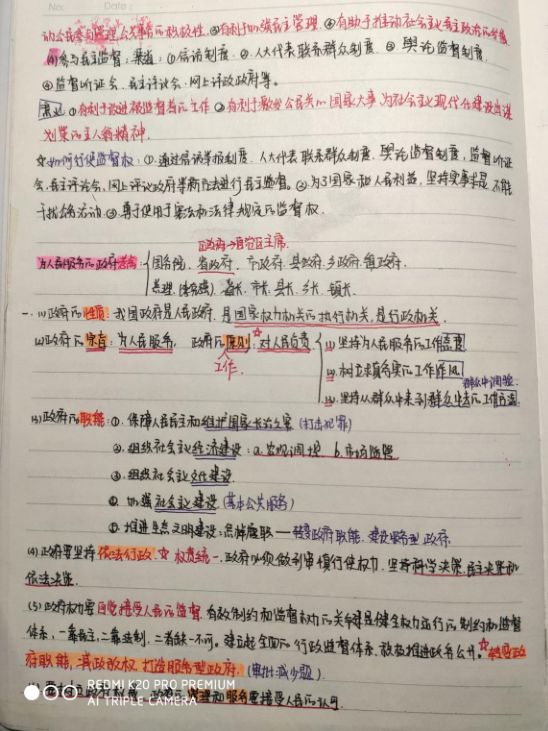 No: Date:
⑤有利于加强民主管理 ④有助于推动社会主义民主政治的发展
(4)参与民主监督:渠道:①信访制度 ②人大代表联系群众制度 ③舆论监督制度
④监督听证会、民主评议会、网上评议政府等。
意义 ①有利于改进被监督者的工作 ②有利于激发公民关心国家大事为社会主义现代化建设出谋
划策的主人翁精神.
☆如何行使监督权:①通过信访举报制度、人大代表联系群众制度、舆论监督制度,监督听证
会、民主评议会、网上评议政府等新方法进行民主监督。②为了国家和人民利益,坚持实事求是 不能
干扰公务活动 ③尊于使用宪法和法律规定的监督权.
区政府→自治区主席.
为人民服务的政府 国务院、省政府、市政府、县政府、乡政府、镇政府.
总理 省长、市长、县长、乡长、镇长.
一、(1)政府的性质:我国政府是人民政府,是国家权力机关的执行机关,是行政机关.
(2)政府的宗旨:为人民服务, 政府的原则:☆对人民负责. (1)坚持为人民服务的工作态度
工作. (2)树立求真务实的工作作风
群众中调验.
(3)坚持从群众中来到群众中去的工作方法
(3)政府的职能:①.保障人民民主和维护国家长治久安(打击犯罪)
②.组织社会主义经济建设:a.宏观调控 b.市场监管
③.组织社会主义文化建设.
④.加强社会主义建设.(基本公共服务)
⑤.推进生态文明建设: 转变政府职能、建设服务型政府.
(4).政府要坚持依法行政.☆权责统一.政府必须做到审慎行使权力,坚持科学决策、民主决策和
依法决策.
(5)政府权力要自觉接受人民的监督.有效制约和监督权力的关键是健全权力运行的制约和监督
体系,一靠民主,二靠法制,二者缺一不可。建立起全面的行政监督体系,积极推进政务公开.☆转变政
府职能,简政放权,打造服务型政府.(审批减少题).
管理和服务要接受人民的认可.
REDMI K20 PRO PREMIUM
AI TRIPLE CAMERA